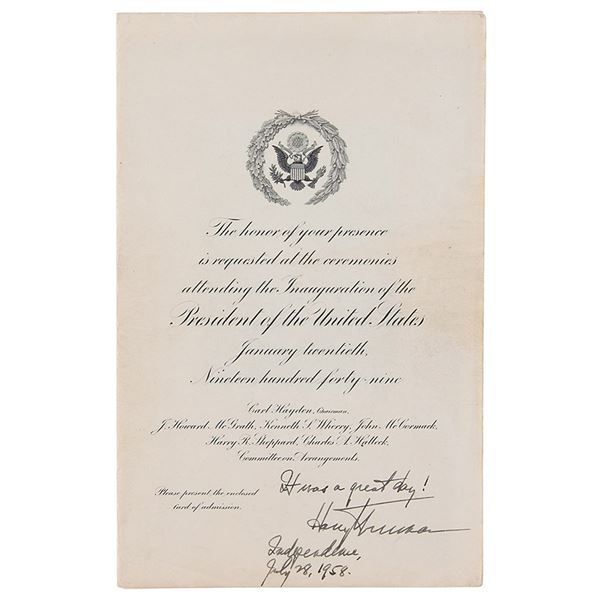 The honor of your presence
is requested at the ceremonies
attending the Inauguration of the
President of the United States
January twentieth,
Nineteen hundred forty-nine
Carl Hayden, Chairman,
J. Howard McGrath, Kenneth S. Wherry, John McCormack,
Harry R. Sheppard, Charles A. Halleck,
Committee on Arrangements.
Please present the enclosed
card of admission.
It was a great day!
Harry Truman
Independence,
July 28, 1958.